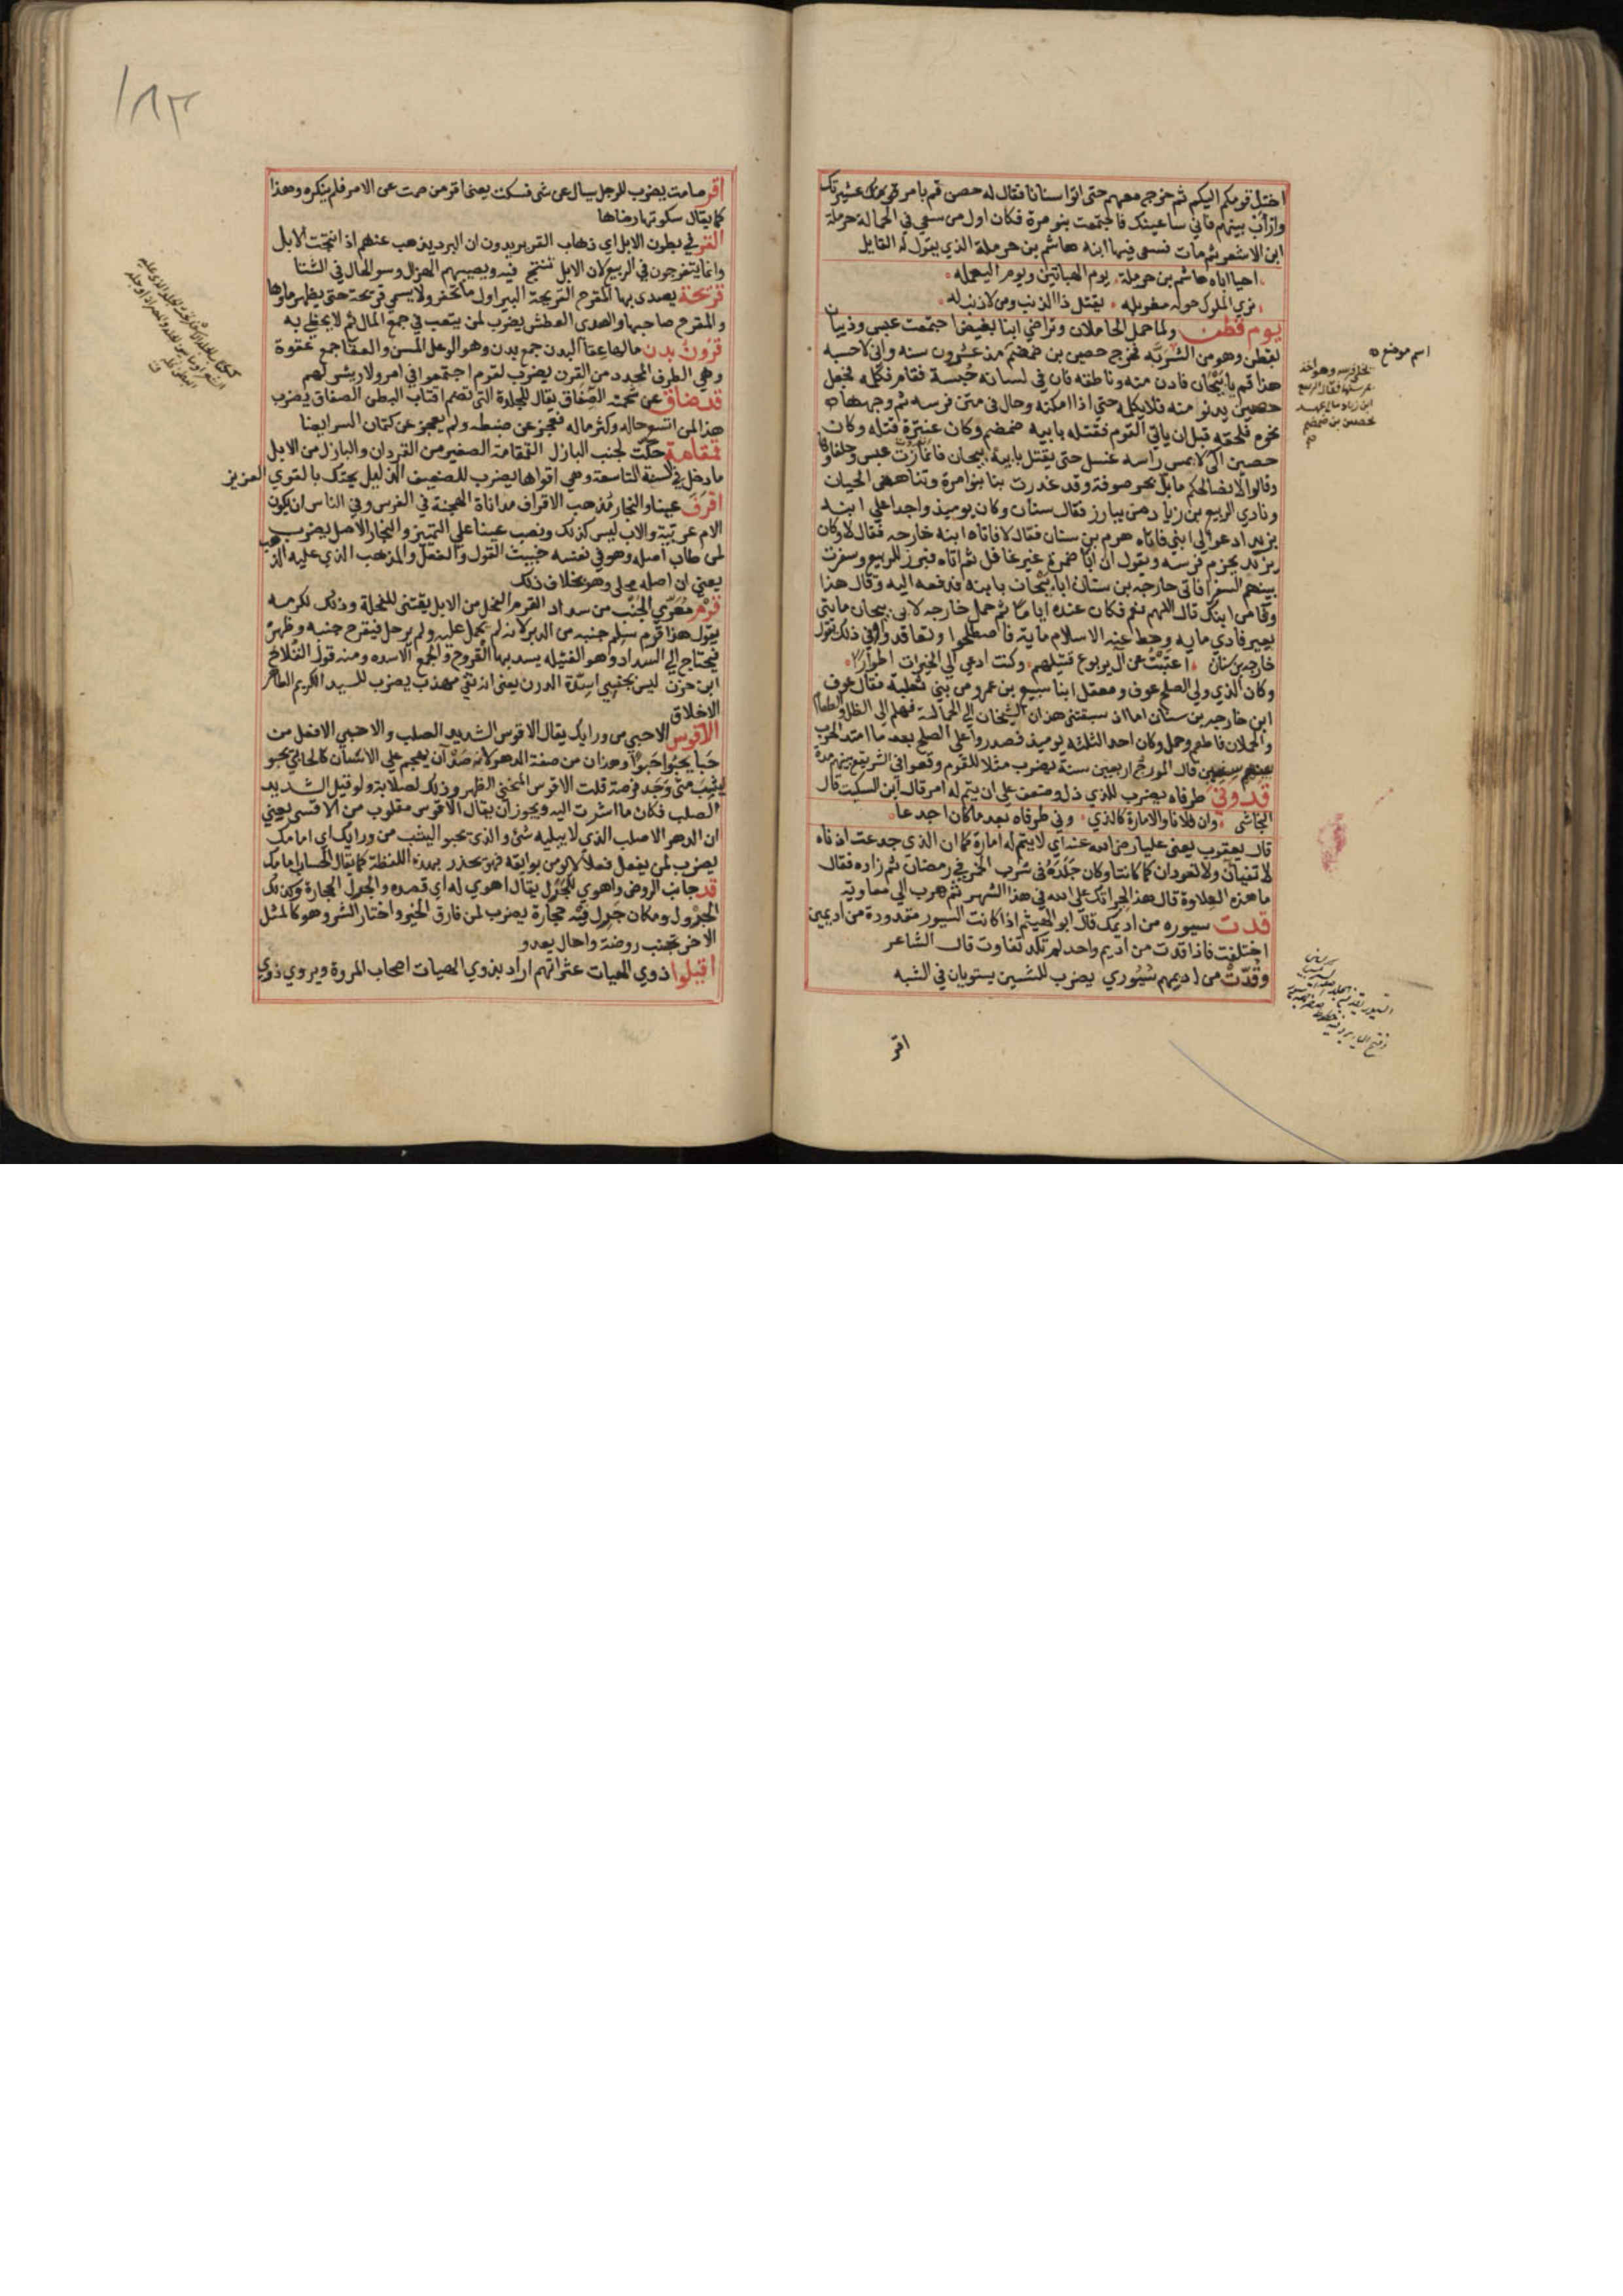 اختل قومكم اليكم ثم خرج معهم حتى اتوا سنانا فقال له حصن قم بامر قومك عشيرتك
وارأب بينهم فاني ساعينك فاجتمعت بنو مرة فكان اول من سعى في الحمالة حرملة
ابن الاشعر ثم مات فسعى فيها ابنه هاشم بن حرملة الذي يقول له القايل
احيا اباه هاشم بن حرملة يوم الهباتين ويوم اليعمله
تري الملوك حوله مغربله يقتل ذا الذنب ومن لا ذنب له
يوم قطن ولما حمل الحاملان وتراضي ابنا بغيض اجتمعت عبس وذبيان
بقطن وهو من الشربة فخرج حصين بن ضمضم منذ عشرون سنه واني لاحسبه
هذا قم يا بيجان فادن منه وناطقه فان في لسانه حبسة فقام فكلمه فجعل
حصين يدنو منه فلا يكلمه حتي اذا امكنه وحال في متن فرسه ثم وجهها
نحوهم فلحقه قبل ان ياتي القوم فقتله بابيه ضمضم وكان عنترة قتله وكان
حصين الي لا يمس راسه غسل حتى يقتل بابيه بيجان فانحازت عبس وحلفاوها
وقالوا لا نصالحكم ما بل بحر صوفة وقد غدرت بنا بنو مرة وتناهض الحيان
ونادي الربيع بن زياد من يبارز فقال سنان وكان يوميذ واجدا علي ابنه
يزيد ادعوا لي ابني فاتاه هرم بن سنان فقال لا فاتاه ابنه خارجه فقال لا وكان
يزيد يحزم فرسه ويقول ان ابا ضمرة غير غافل ثم اتاه فبرز للربيع وسفرت
بينهم السفرا فاتي خارجه بن سنان ابا بيجان بابنه فدفعه اليه وقال هذا
وفا من ابنك قال اللهم نعم فكان عنده اياما ثم حمل خارجه لابي بيجان مايتي
بعير فادي مايه وحط عنه الاسلام ماية فاصطلحوا وتعاقدوا وفي ذلك يقول
خارجه بن سنان اعتبت عن آل يربوع قتيلهم وكنت ادعي الي الخيرات اطوارا
وكان الذي ولي الصلح عوف ومعقل ابنا سبيع بن عمرو من بني ثعلبة فقال عوف
ابن خارجه بن سنان اما اذ سبقتني هذان الشيخان الي الحمالة فهلم الي الظل والطعام
والحملان فاطعم وحمل وكان احد الثلثه يوميذ فصدروا علي الصلح بعد ما امتد الحرب
قال المورج اربعين سنة يضرب مثلا للقوم وقعوا في الشر يبقي بينهم مدة
قد وني طرفاه يضرب للذي ذل وضعف على ان يتم له امر قال ابن السكيت قال
النجاشي وان فلانا والامارة كالذي وني طرفاه بعد ما كان اجدعا
قال يعقوب يعني عليا رضي الله عنه اي لا يتم له امارة كما ان الذي جدعت اذناه
لا تفيان ولا تعودان كما كانتا وكان جلده في شرب الخمر في رمضان ثم زاده فقال
ما هذه العلاوة قال هذا لجراتك على الله في هذا الشهر ثم هرب الي معاوية
قدت سيوره من اديمك قال ابو الهيثم اذا كانت السيور مقدورة من اديمين
اختلفت فاذا قدت من اديم واحد لم تكد تفاوت قال الشاعر
وقدت من اديمهم سيوري يضرب للشيئين يستويان في الشبه
اسم موضع
اقر
١٨٣
اقر صامت يضرب للرجل يسال عن شي فسكت يعني اقر من صمت عن الامر فلم ينكره وهذا
كما يقال سكوتها رضاها
القر في بطون الابل اي ذهاب القر يريدون ان البرد يذهب عنهم اذا نتجت الابل
وانما يتفرجون في الربيع لان الابل تنتج فيه ويصيبهم الهزال وسو الحال في الشتا
قريحة يصدي بها المقرح القريحة البير اول ما تحفر ولا يسمي قريحة حتى يظهر ماوها
والمقرح صاحبها والصدي العطش يضرب لمن يتعب في جمع المال ثم لا يحظي به
قرون بدن مالها عقا البدن جمع بدن وهو الوعل المسن والعقا جمع عقوة
وهي الطرف المحدد من القرن يضرب لقوم اجتمعوا في امر ولا ريس لهم
قد ضاق عن شحمه الصفاق يقال للجلدة التي تضم اقتاب البطن الصفاق يضرب
هذا لمن اتسع حاله وكثر ماله فعجز عن ضبطه ولم يعجز عن كتمان السر ايضا
قمقامة حكت لجنب البازل القمقامة الصغير من القردان والبازل من الابل
ما دخل في السنة التاسعة وهي اقواها يضرب للضعيف الذليل يحتك بالقوي العزيز
اقرف عينا والنجار مذهب الاقراف مداناة الهجنة في الفرس وفي الناس ان يكون
الام عربية والاب ليس كذلك ونصب عينا علي التمييز والنجار الاصل يضرب
لمن طاب اصله وهو في نفسه خبيث القول والفعل والمذهب الذي عليه الذهب
يعني ان اصله محلى وهو بخلاف ذلك
قرم معري الجنب من سداد القرم الفحل من الابل يقتني للفحلة وذلك لكرمه
يقول هذا قرم سلم جنبه من الدبر لانه لم يحمل عليه ولم يرحل فيقرح جنبه وظهره
فيحتاج الي السداد وهو الفتيله يسد بها القروح والجمع الاسدة ومنه قول القلاخ
ابن حزن ليس بجنبي اسدة الدرن يعني انه نقي مهذب يضرب للسيد الكريم الطاهر
الاخلاق
الاقوس الاحبي من ورايك يقال الاقوس الشديد الصلب والاحبي الافعل من
حبا يحبوا حبوا وهذان من صفة الدهر لانه يرصد ان يهجم على الانسان كالحابي يحبو
ليثب متى وجد فرصة قلت الاقوس المنحني الظهر وذلك لصلابته ولو قيل الشديد
الصلب فكان ما اشرت اليه ويجوز ان يقال الاقوس مقلوب من الاقسي يعني
ان الدهر الاصلب الذي لا يبليه شي والذي يحبو ليثب من ورايك اي امامك
يضرب لمن يفعل فعلا لا يومن بوايقه فهو يحذر بهذه اللفظة كما يقال الحساب امامك
قد جانب الروض واهوي للجرل يقال اهوي له اي قصده والجرل الحجارة وكذلك
الجرول ومكان جرل فيه حجارة يضرب لمن فارق الخير واختار الشر وهو كالمثل
الاخر تجنب روضة واحال يعدو
اقيلوا ذوي الهيات عثراتهم اراد بذوي الهيات اصحاب المروة ويروي ذوي